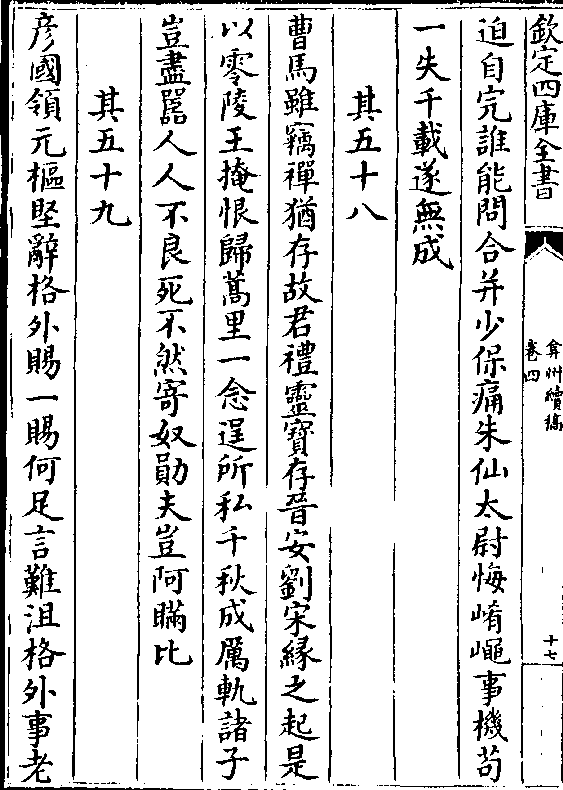 欽定四庫全書
弇州續稿
卷四
十七
迫自完誰能問合并少保痛朱仙太尉悔崤澠事機苟
一失千載遂無成
其五十八
曹馬雖竊禪猶存故君禮靈寶存晉安劉宋緣之起是
以零陵王掩恨歸蒿里一念逞所私千秋成厲軌諸子
豈盡嚚人人不良死不然寄奴勛夫豈阿瞞比
其五十九
彦國領元樞堅辭格外賜一賜何足言難沮格外事老